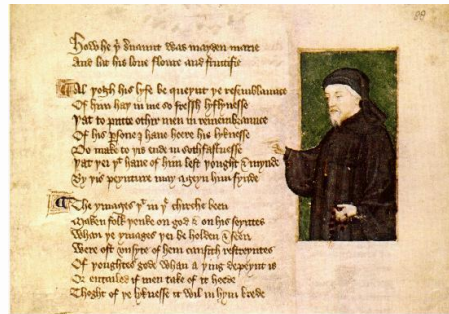 88
How he þi seruaunt was mayden marie
And lat his loue floure and fructifie
Al þogh his lyfe be queynt þe resemblaunce
Of him haþ in me so fressh lyflynesse
Þat to putte othir men in remembraunce
Of his persone I haue heere his lyknesse
Do make to þis ende in sothfastnesse
Þat þei þt haue of him left þought & mynde
By þis peynture may ageyn him fynde
The ymages þt in þe chirche been
Maken folk þenke on god & on his seyntes
Whan þe ymages þei beholden & seen
Were oft vnsyte of hem causith restreyntes
Of þoughtes gode whan a þing depeynt is
Or entailed if men take of it heede
Thoght of þe lyknesse it wil in hym brede